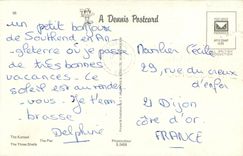 A Dennis Postcard
un petit bonjour
de Southend en An-
gleterre où je passe
de très bonnes
vacances. Le
soleil est au rendez
-vous. Je t'em-
brasse
Delphine
Cécile
29, rue du creux
d'enfer
21 Dijon
côte d'or.
FRANCE
The Kursaal
The Pier
The Three Shells